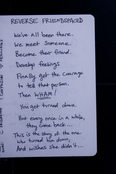 REVERSE FRIENDZONED
We've all been there.
We meet someone.
Become their friend.
Develop feelings
Finally get the courage
to tell that person.
Then WHAM!
You get turned down.
But every once in a while,
they come back....
This is the story of the one
who turned him down,
And wishes she didn't...